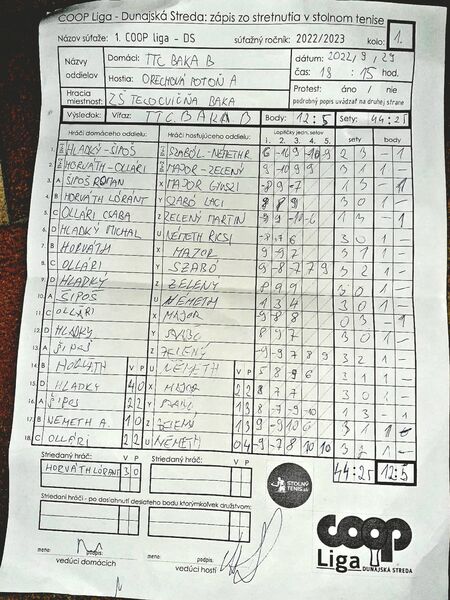 COOP Liga - Dunajská Streda: zápis zo stretnutia v stolnom tenise
Názov súťaže: 1. COOP liga - DS súťažný ročník: 2022/2023 kolo: 1.
Názvy oddielov Domáci: TTC BAKA B dátum: 2022 / 9 / 29
Hostia: ORECHOVÁ POTÔŇ A čas: 18 : 15 hod.
Hracia miestnosť: ZŠ TELOCVIČŇA BAKA Protest: áno / nie
podrobný popis uvádzať na druhej strane
Výsledok: Víťaz: TTC BAKA B Body: 12:5 Sety: 44:25
Hráči domáceho oddielu: Hráči hosťujúceho oddielu: Loptičky jedn. setov sety body
1. 2. 3. 4. 5.
1. HLADKÝ-ŠIPOŠ SZABÓL-NÉMETH R 6 -10 9 -10 -9 2 3 - 1
2. HORVÁTH-OLLÁRI MAJOR-ZELENÝ 3 1 1 -
3. A ŠIPOŠ ROMAN X MAJOR -8 9 -7 1 3 - 1
4. B HORVÁTH LÓRÁNT Y SZABÓ LACI 8 8 9 3 0 1 -
5. C OLLÁRI CSABA Z ZELENÝ MARTIN -9 9 -10 -6 1 3 - 1
6. D HLADKÝ MICHAL U NÉMETH RICSI 3 0 1 -
7. B HORVÁTH X MAJOR 3 1 1 -
8. C OLLÁRI Y SZABÓ 9 -8 -7 7 9 3 2 1 -
9. D HLADKÝ Z ZELENÝ 8 9 9 3 0 1 -
10. A ŠIPOŠ U NÉMETH 1 3 4 3 0 1 -
11. C OLLÁRI X MAJOR -9 -8 -8 0 3 - 1
12. D HLADKÝ Y SZABÓ 8 9 7 3 0 1 -
13. A ŠIPOŠ Z ZELENÝ -9 -9 7 8 9 3 2 1 -
14. B HORVÁTH V P U NÉMETH V P 5 8 -9 6 3 1 1 -
15. D HLADKÝ 4 0 X MAJOR 2 2 8 7 7 3 0 1 -
16. A ŠIPOŠ 2 2 Y SZABÓ 1 3 8 -7 -9 -10 1 3 - 1
17. B NÉMETH A. 1 0 Z ZELENÝ 1 3 9 -9 10 6 3 1 1
18. C OLLÁRI 2 2 U NÉMETH 0 4 -9 -7 8 10 10 3 2 1 -
Striedaný hráč: V P Striedaný hráč: V P 44:25 12:5
HORVÁTH LÓRÁNT 3 0
STOLNÝ TENIS.sk
Striedaní hráči - po dosiahnutí desiateho bodu ktorýmkoľvek družstvom:
meno: podpis: meno: podpis:
vedúci domácich vedúci hostí
coop
Liga DUNAJSKÁ STREDA